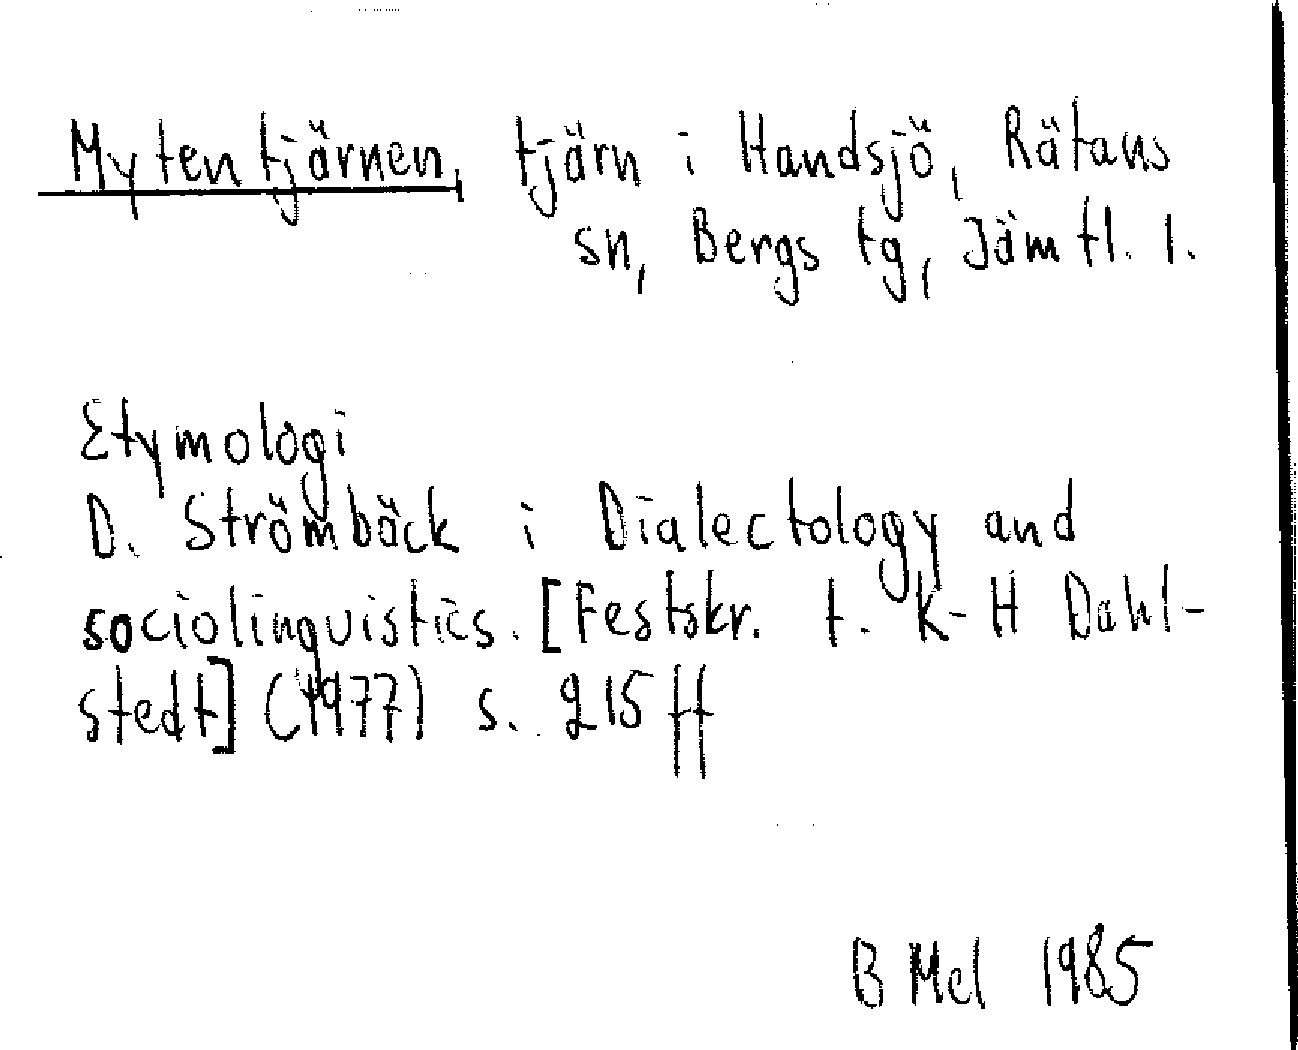 Mytentjärnen, tjärn i Handsjö, Rätans
sn, Bergs tg, Jämtl. l.
Etymologi
D. Strömbäck i Dialectology and
sociolinguistics. [Festskr. t. K-H Dahl-
stedt] (1977) s. 215 ff
B Mel 1985